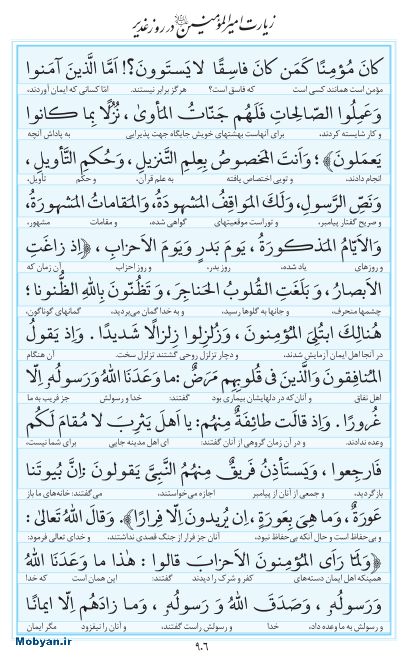 زیارت امیرالمؤمنین در روز غدیر
کانَ مُؤمِنًا کَمَن کانَ فاسِقًا لا یَستَوونَ؟! اَمَّا الَّذینَ آمَنوا
مؤمن است همانند کسی است که فاسق است؟ هرگز برابر نیستند. امّا کسانی که ایمان آوردند،
وَ عَمِلُوا الصّالِحاتِ فَلَهُم جَنّاتُ المَأویٰ، نُزُلًا بِما کانوا
و کار شایسته کردند. برای آنهاست بهشتهای خویش جایگاه جهت پذیرایی به پاداش آنچه
یَعمَلونَ﴾؛ وَاَنتَ المَخصوصُ بِعِلمِ التَّنزیلِ، وَحُکمِ التَّأویلِ،
انجام دادند، و تویی اختصاص یافته به علم قرآن، و حکم تأویل،
وَنَصِّ الرَّسولِ، وَلَکَ المَواقِفُ المَشهودَةُ، وَالمَقاماتُ المَشهورَةُ،
و صریح گفتار پیامبر، و توراست موقعیتهای گواهی شده، و مقامات مشهور،
وَالاَیّامُ المَذکورَةُ، یَومَ بَدرٍ وَ یَومَ الاَحزابِ، ﴿اِذ زاغَتِ
و روزهای یاد شده، روز بدر، و روز احزاب، آن زمان که
الاَبصارُ، وَ بَلَغَتِ القُلوبُ الحَناجِرَ، وَ تَظُنّونَ بِاللهِ الظُّنونا؛
چشمها منحرف، و جانها به گلوها رسید، و به خدا گمان می‌بردید، گمانهای گوناگون،
هُنالِکَ ابتُلِیَ المُؤمِنونَ، وَزُلزِلوا زِلزالًا شَدیدًا. وَ اِذ یَقولُ
در آنجا اهل ایمان آزمایش شدند، و دچار تزلزل روحی گشتند تزلزل سخت. آن هنگام
المُنافِقونَ وَالَّذینَ فی قُلوبِهِم مَرَضٌ: ما وَعَدَنَا اللهُ وَ رَسولُهٗ اِلّا
اهل نفاق و آنان که در دلهایشان بیماری بود گفتند: خدا و رسولش جز فریب به ما
غُرورًا. وَ اِذ قالَت طائِفَةٌ مِنهُم: یا اَهلَ یَثرِبَ لا مُقامَ لَکُم
وعده ندادند. و در آن زمان گروهی از آنان گفتند: ای اهل مدینه جایی برای شما نیست،
فَارجِعوا، وَ یَستَأذِنُ فَریقٌ مِنهُمُ النَّبِیَّ یَقولونَ: اِنَّ بُیوتَنا
بازگردید، و جمعی از آنان از پیامبر اجازه می‌خواستند، می‌گفتند: خانه‌های ما باز
عَورَةٌ، وَما هِیَ بِعَورَةٍ، اِن یُریدونَ اِلّا فِرارًا﴾. وَقالَ اللهُ تَعالیٰ:
و بی‌حفاظ است و حال آنکه بی‌حفاظ نبود، آنان جز فرار از جنگ قصدی نداشتند، و خدای تعالی فرمود:
﴿وَلَمّا رَاَی المُؤمِنونَ الاَحزابَ قالوا: هٰذا ما وَعَدَنَا اللهُ
همینکه اهل ایمان دسته‌های کفر و شرک را دیدند گفتند: این همان است که خدا
وَ رَسولُهٗ، وَ صَدَقَ اللهُ وَ رَسولُهٗ، وَ ما زادَهُم اِلّا ایمانًا
و رسولش به ما وعده داد، خدا و رسولش راست گفتند، و آنان را نیفزود مگر ایمان
Mobyan.ir
۹۰۶